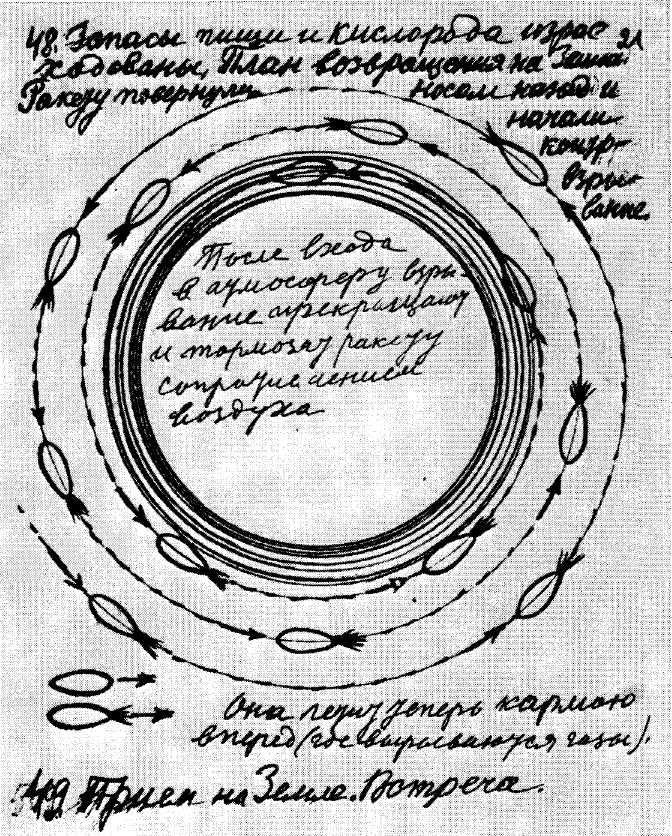 48. Запасы пищи и кислорода израс 21
ходованы. План возвращения на Землю.
Ракету повернули носом назад и
начали
контр-
взры-
вание.
После входа
в атмосферу взры-
вание прекращают
и тормозят ракету
сопротивлением
воздуха
Она летит теперь кармою
вперед (где вырываются газы).
49 Прием на Земле. Встреча.